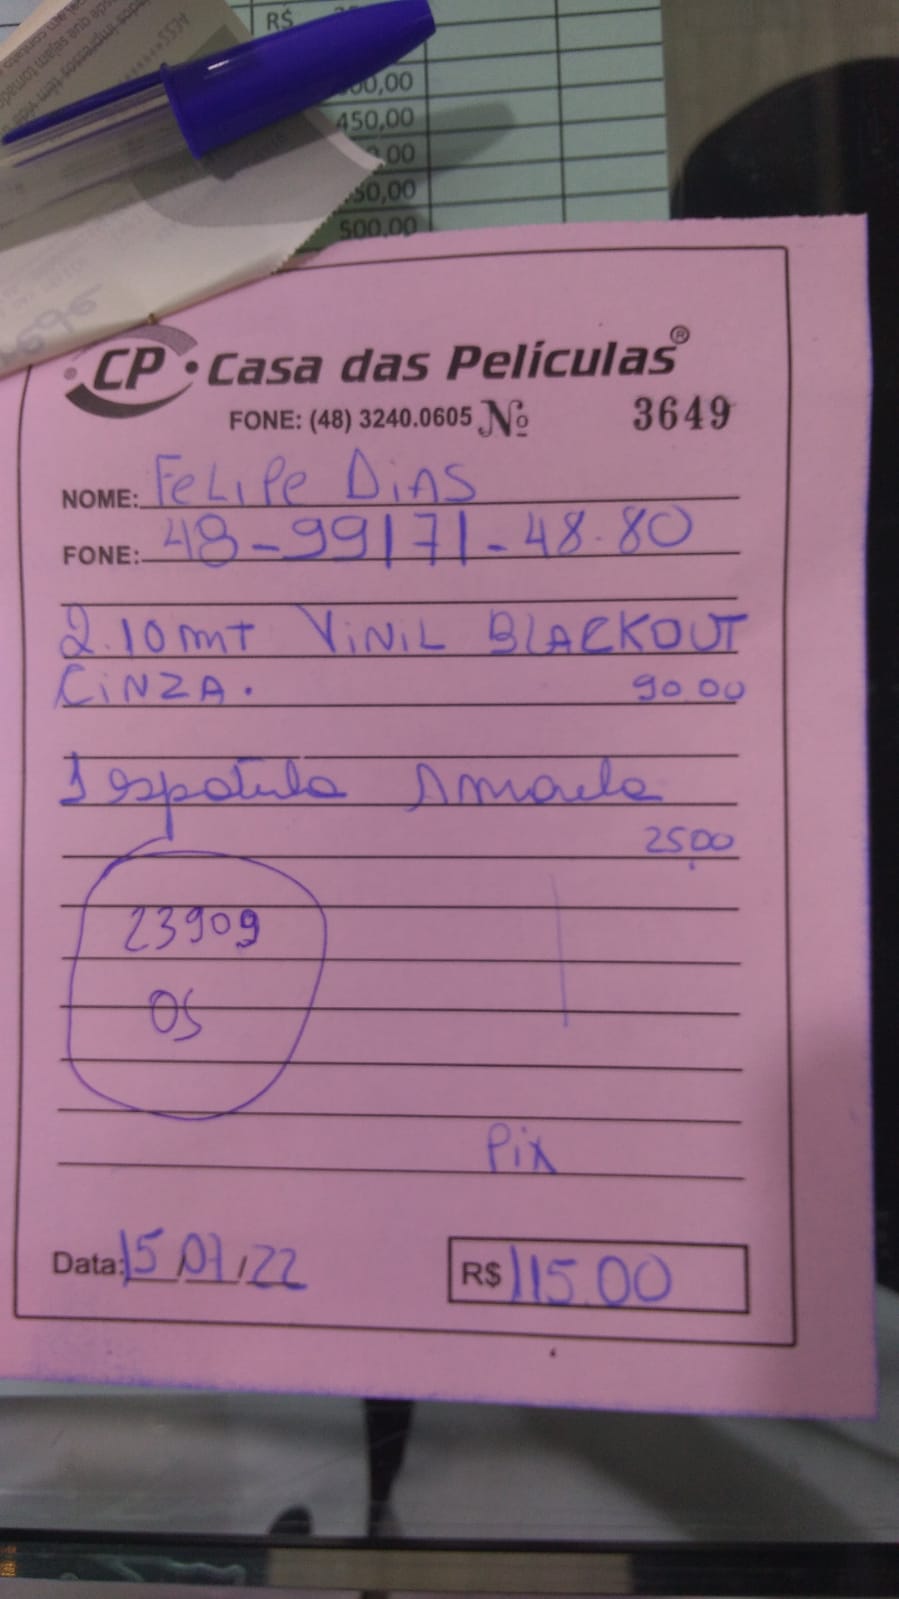 R$
00,00
450,00
,00
50,00
500,00
CP · Casa das Películas®
FONE: (48) 3240.0605 Nº 3649
NOME: FELIPE DIAS
FONE: 48-99171-48.80
2.10mt VINIL BLACKOUT
CINZA. 90.00
1 espatula Amarela
25.00
23909
OS
Pix
Data: 15/07/22 R$ 115.00